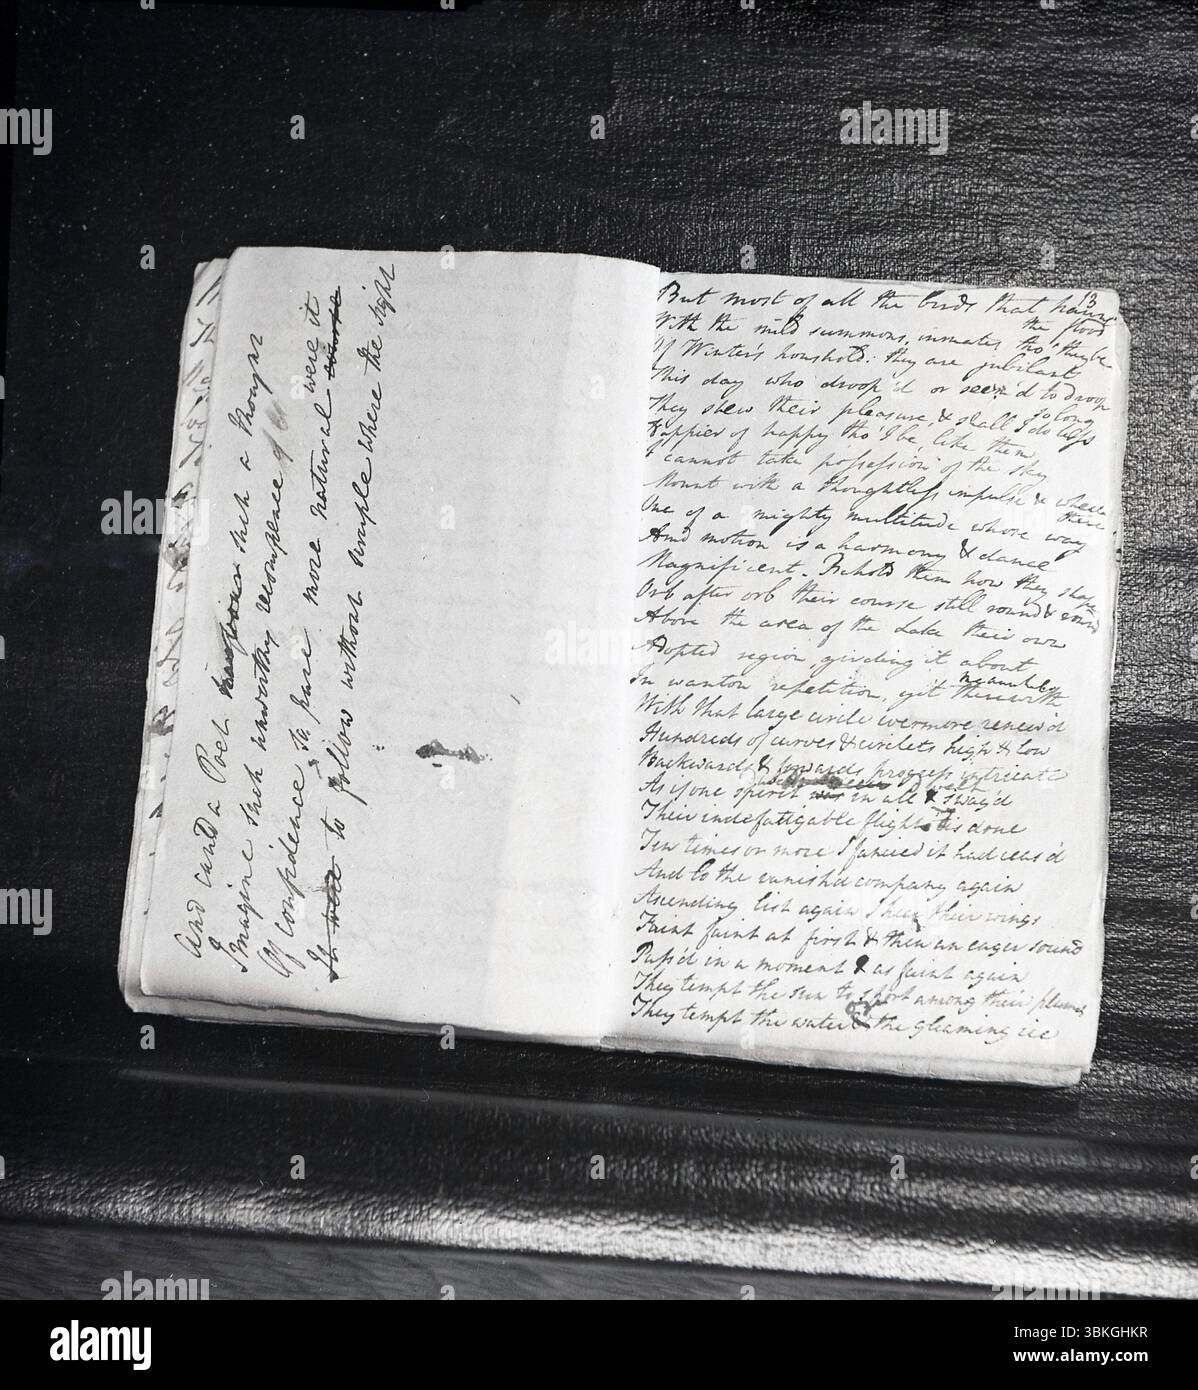 And can'd a Poet such a thought
I
Imagine such unworthy recompence
Of confidence, to have more natural were it
It were to follow without scruple where the sight
13
But most of all the birds that haunt
the flood
With the mild summons, inmates tho' they be
Of Winter's houshold: they are jubilant
This day who droop'd or seem'd to droop
so long
They shew their pleasure, & shall I do less
Happier of happy tho' I be, like them
I cannot take possession of the sky
Mount with a thoughtless impulse & wheel
there
One of a mighty multitude whose way
And motion is a harmony & dance
Magnificent. Behold them how they shape
Orb after orb their course still round & round
Above the area of the Lake their own
Adopted region, girding it about
In wanton repetition, yet therewith
meanwhile
With that large circle evermore renew'd
Hundreds of curves & circlets high & low
Backwards & forwards progress intricate
As if one spirit was in all & sway'd
Their indefatigable flight. Tis done
Ten times or more I fancied it had ceas'd
And lo the vanish'd company again
Ascending list again I hear their wings
Faint faint at first & then an eager sound
Pass'd in a moment & as faint again
They tempt the sun to sport among their plumes
They tempt the water & the gleaming ice
or
alamy
a
Image ID: 3BKGHKR
www.alamy.com